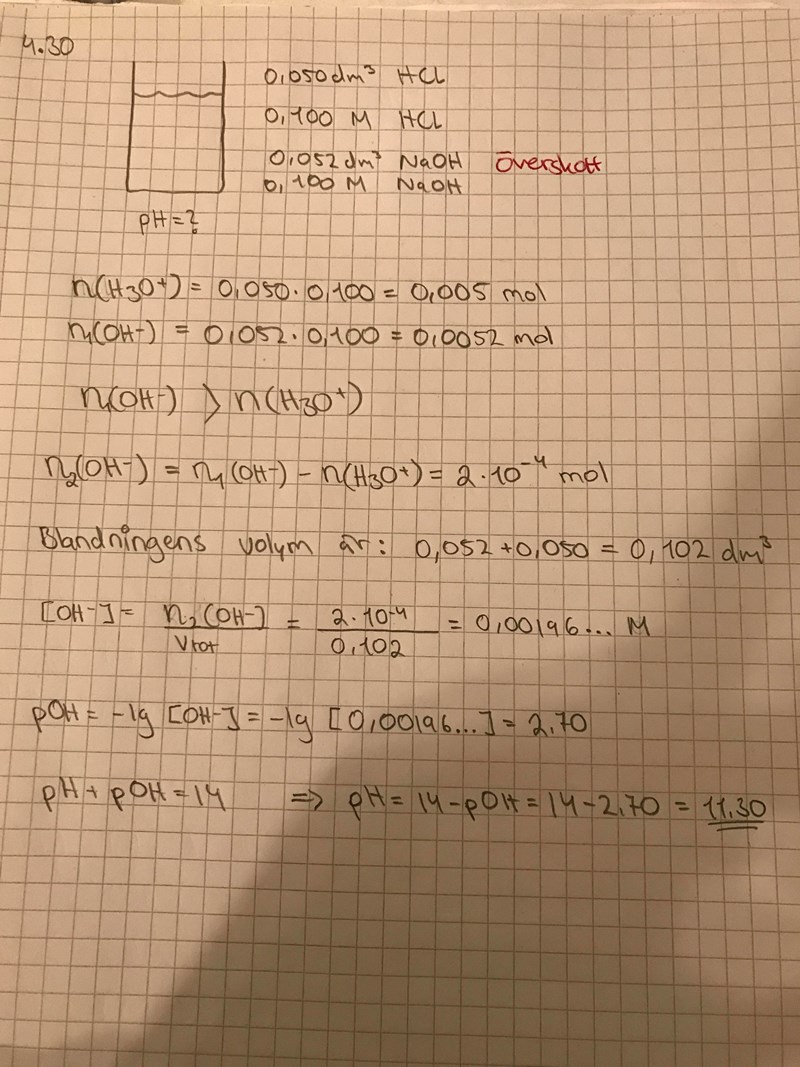 4.30
0,050 dm³ HCl
0,100 M HCl
0,052 dm³ NaOH Överskott
0,100 M NaOH
pH = ?
n(H3O+) = 0,050 · 0,100 = 0,005 mol
n₁(OH-) = 0,052 · 0,100 = 0,0052 mol
n₁(OH-) > n(H3O+)
n₂(OH-) = n₁(OH-) - n(H3O+) = 2 · 10⁻⁴ mol
Blandningens volym är: 0,052 + 0,050 = 0,102 dm³
[OH-] = n₂(OH-) / Vtot = 2 · 10⁻⁴ / 0,102 = 0,00196... M
pOH = -lg [OH-] = -lg [0,00196...] = 2,70
pH + pOH = 14 => pH = 14 - pOH = 14 - 2,70 = 11,30